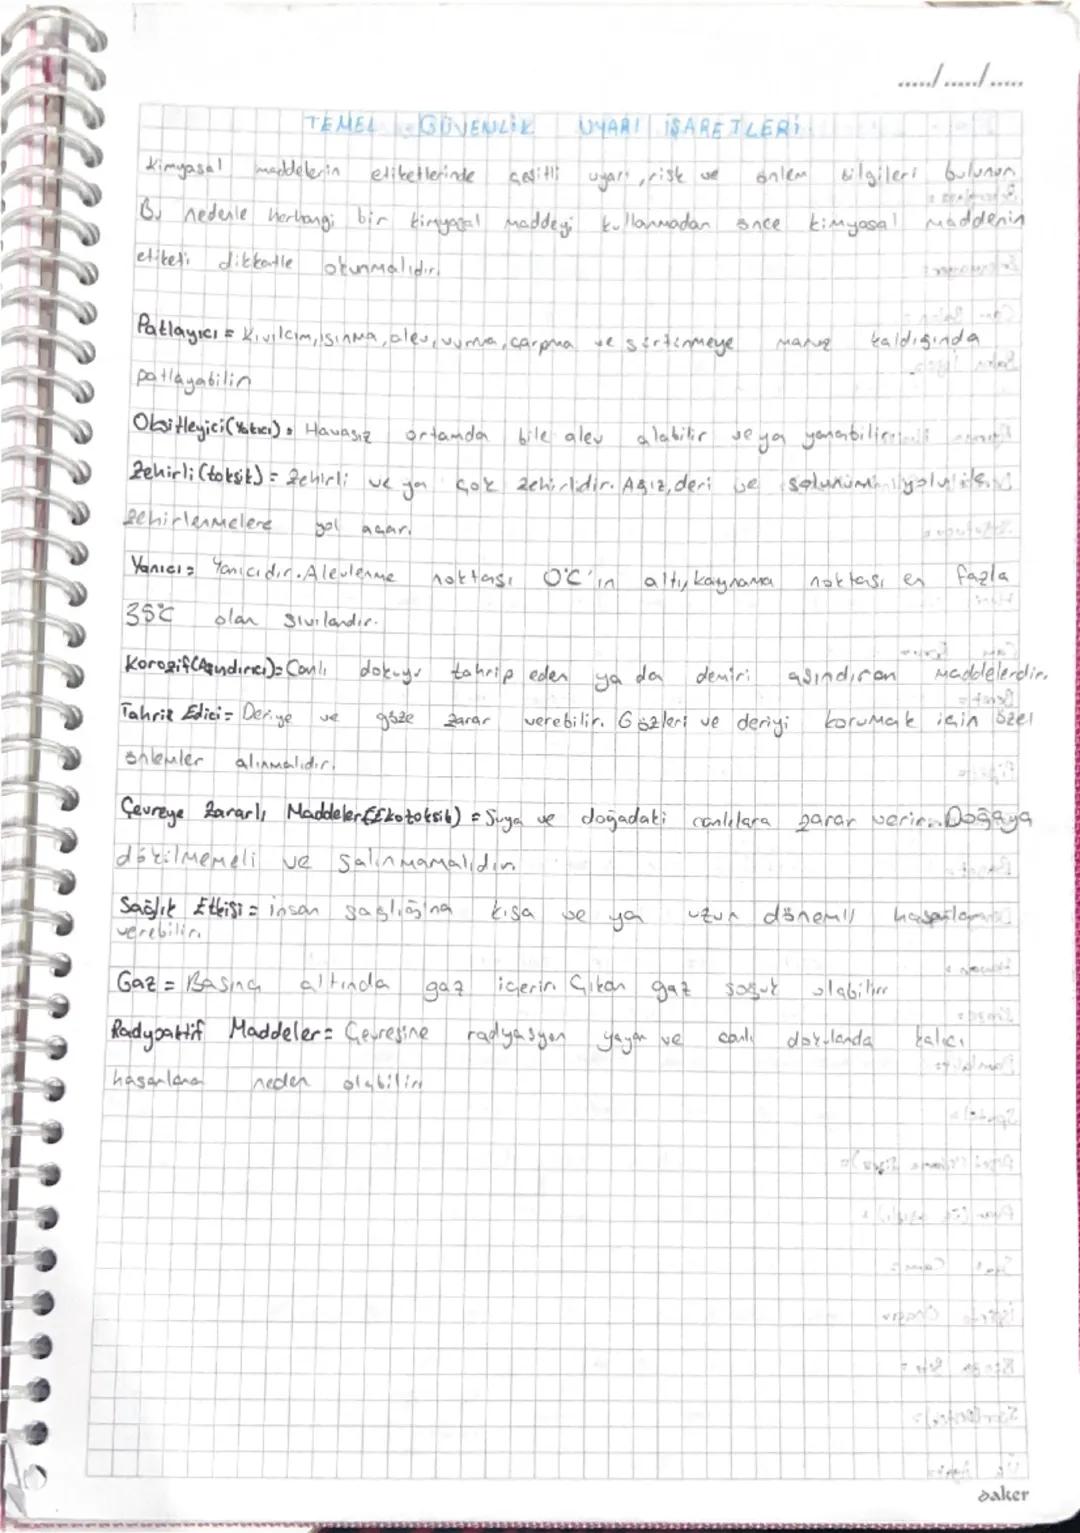 ...../...../.....
TEMEL GÜVENLİK UYARI İŞARETLERİ
Kimyasal maddelerin etiketlerinde çeşitli uyarı, risk ve önlem bilgileri bulunur.
Bu nedenle herhangi bir kimyasal maddeyi kullanmadan önce kimyasal maddenin
etiketi dikkatle okunmalıdır.
Patlayıcı = Kıvılcım, ısınma, alev, vurma, çarpma ve sürtünmeye maruz kaldığında
patlayabilir.
Oksitleyici (Yakıcı) = Havasız ortamda bile alev alabilir veya yanabilir.
Zehirli (toksik) = Zehirli ve ya çok zehirlidir. Ağız, deri ve solunum yolu ile
zehirlenmelere yol açar.
Yanıcı = Yanıcıdır. Alevlenme noktası 0°C'in altı, kaynama noktası en fazla
35°C olan sıvılardır.
Korozif (Aşındırıcı) = Canlı dokuyu tahrip eden ya da demiri aşındıran maddelerdir.
Tahriş Edici = Deriye ve göze zarar verebilir. Gözleri ve deriyi korumak için özel
önlemler alınmalıdır.
Çevreye Zararlı Maddeler (Ekotoksik) = Suya ve doğadaki canlılara zarar verir. Doğaya
dökülmemeli ve salınmamalıdır.
Sağlık Etkisi = insan sağlığına kısa ve ya uzun dönemli hasarlar
verebilir.
Gaz = Basınç altında gaz içerir. Çıkan gaz soğuk olabilir.
Radyoaktif Maddeler = Çevresine radyasyon yayan ve canlı dokularda kalıcı
hasarlara neden olabilir.
saker